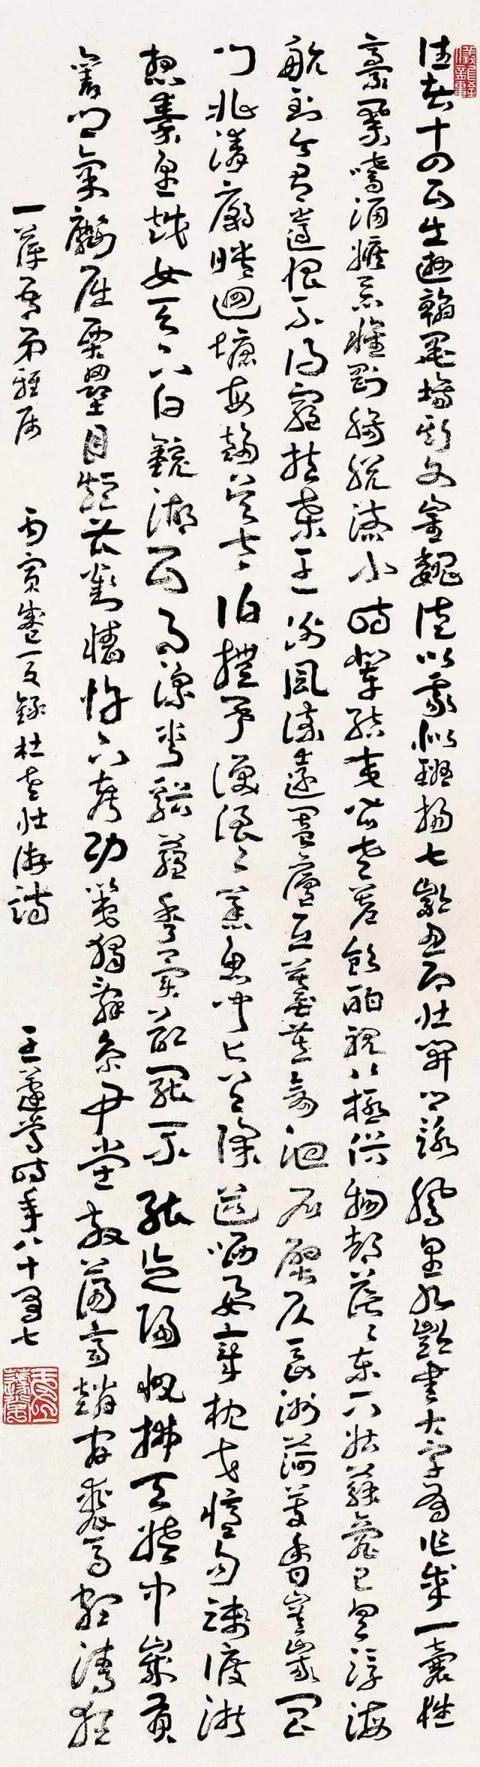 往昔十四五出遊翰墨場斯文崔魏徒以我似班揚七齡思即壯開口詠鳳皇九齡書大字有作成一囊性
豪業嗜酒嫉惡懷剛腸脫略小時輩結交皆老蒼飲酣視八極俗物都茫茫東下姑蘇臺已具浮海
航到今有遺恨不得窮扶桑王謝風流遠闔廬丘墓荒劍池石壁仄長洲荷芰香嵯峨閶
門北清廟映迴塘每趨吳太伯撫事淚浪浪蒸魚聞匕首除道哂要章枕戈憶勾踐渡浙
想秦皇越女天下白鏡湖五月涼剡谿蘊秀異欲罷不能忘歸帆拂天姥中歲貢
舊鄉氣劘屈賈壘目短曹劉牆忤下考功第獨辭京尹堂放蕩齊趙間裘馬頗清狂
一萍吾弟雅屬 丙寅夏錄杜老壯游詩 王蘧常時年八十有七